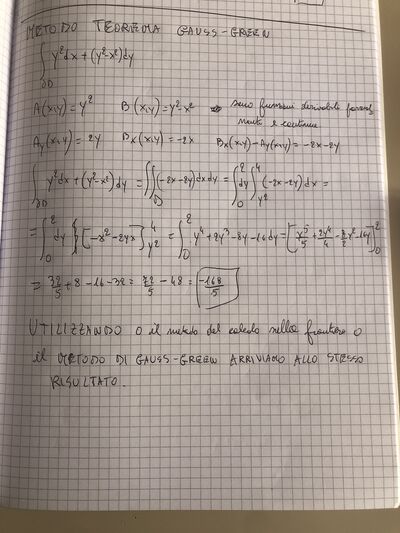 METODO TEOREMA GAUSS-GREEN
∫∂D y²dx + (y²-x²)dy
A(x,y) = y² B(x,y) = y²-x² sono funzioni derivabili parzial
mente e continue
Ay(x,y) = 2y Bx(x,y) = -2x Bx(x,y) - Ay(x,y) = -2x-2y
∫∂D y²dx + (y²-x²)dy = ∬D (-2x-2y)dxdy = ∫₀² ∫y²⁴ (-2x-2y)dx =
= ∫₀² dy {[-x²-2yx]y²⁴ = ∫₀² y⁴+2y³-8y-16dy = [x⁵/5 + 2y⁴/4 - 8/2 x² - 16y]₀²
= 32/5 + 8 - 16 - 32 = 72/5 - 48 = -168/5
UTILIZZANDO o il metodo del calcolo sulla frontiera o
il METODO DI GAUSS-GREEN ARRIVIAMO ALLO STESSO
RISULTATO.